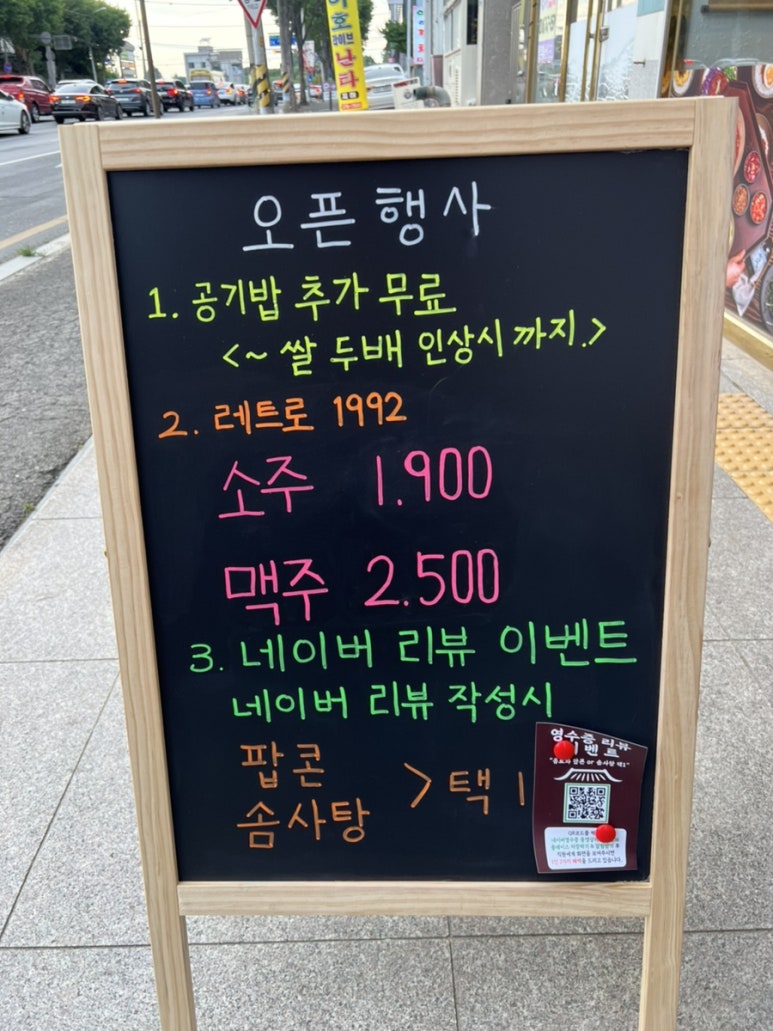 오픈 행사
1. 공기밥 추가 무료
<~ 쌀 두배 인상시 까지.>
2. 레트로 1992
소주 1.900
맥주 2.500
3. 네이버 리뷰 이벤트
네이버 리뷰 작성시
팝콘
솜사탕 > 택 1
영수증 리뷰
이벤트
라이브
난타